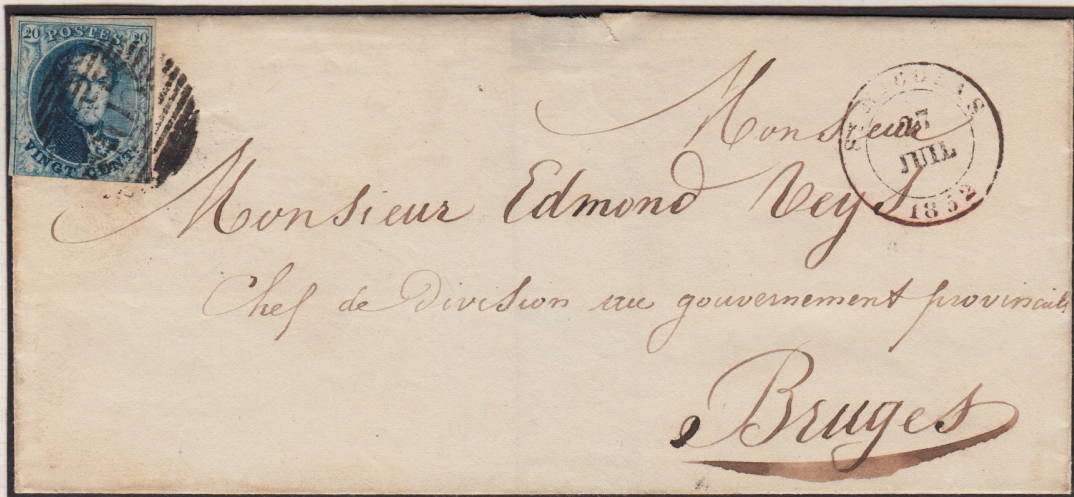 20 POSTES 20
VINGT CENT.
ST NICOLAS
27
JUIL
1852
Monsieur
Monsieur Edmond Veys
Chef de Division au gouvernement provincial
Bruges